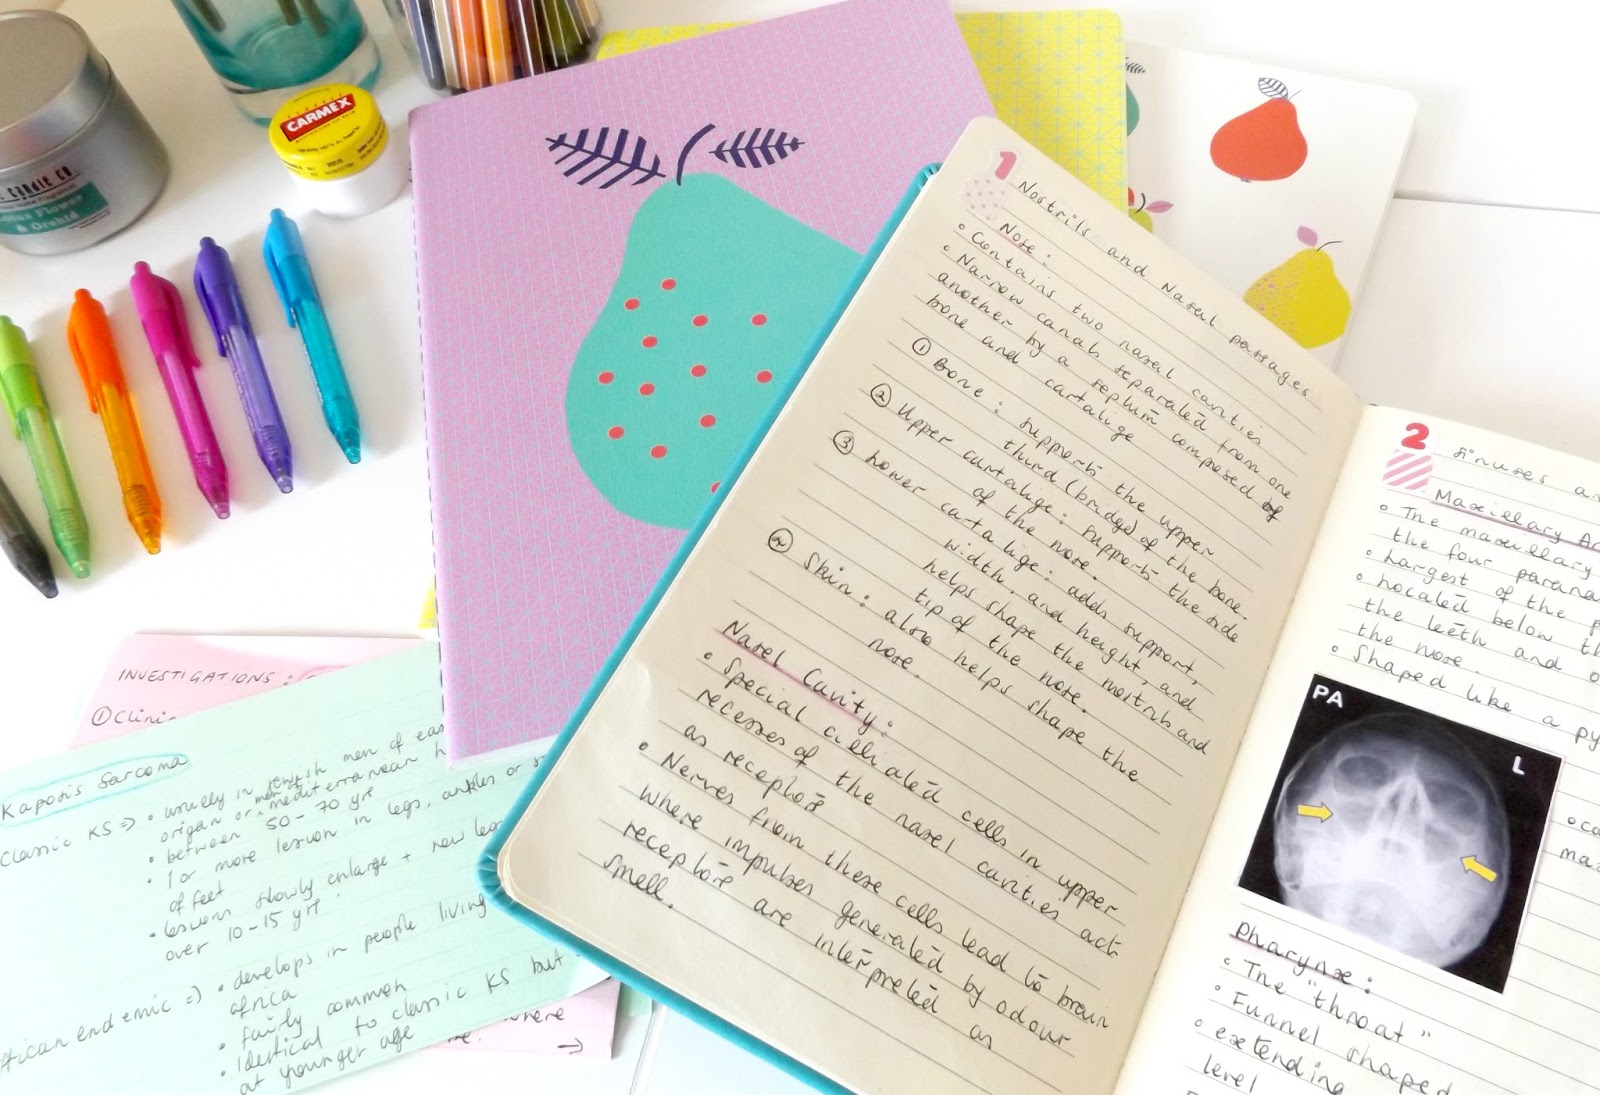 CARMEX
CANDLE CO
Lotus Flower
& Orchid
1
Nostrils and Nasal passages
Nose:
• Contains two nasal cavities
• Narrow canals separated from one
another by a septum composed of
bone and cartalige
① Bone: supports the upper
third (bridge) of the bone.
② Upper cartalige: supports the side
of the nose.
③ Lower cartalige: adds support,
width, and height, and
helps shape the nostrils and
tip of the nose.
④ Skin: also helps shape the
nose.
Nasel Cavity:
• Special cilliated cells in upper
recesses of the nasel cavities act
as receptors
• Nerves from these cells lead to brain
where impulses generated by odour
receptors are interpreted as
smell.
2
Sinuses
Maxillary
• The maxillary
the four
• Largest of the
• Located below
the teeth and
the nose.
• Shaped like a
PA
L
pharynx:
• The "throat"
• Funnel shaped
• extending
level
INVESTIGATIONS:
①
Kaposi's Sarcoma
Classic KS => • usually in jewish men of
origin or men mediterranean
• between 50-70 yrs
• 1 or more lesion in legs, ankles or
of feet
• lesions slowly enlarge + new
over 10-15 yrs
endemic => • develops in people living
africa
• fairly common
• Identical to classic KS but
at younger age
where
→